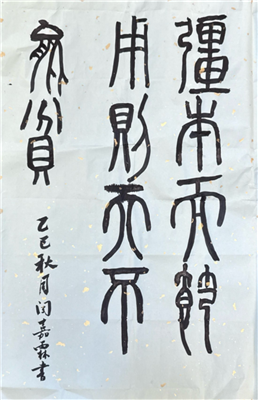 彊本而節
用則天不
能貧
乙巳秋月闵嘉霖書